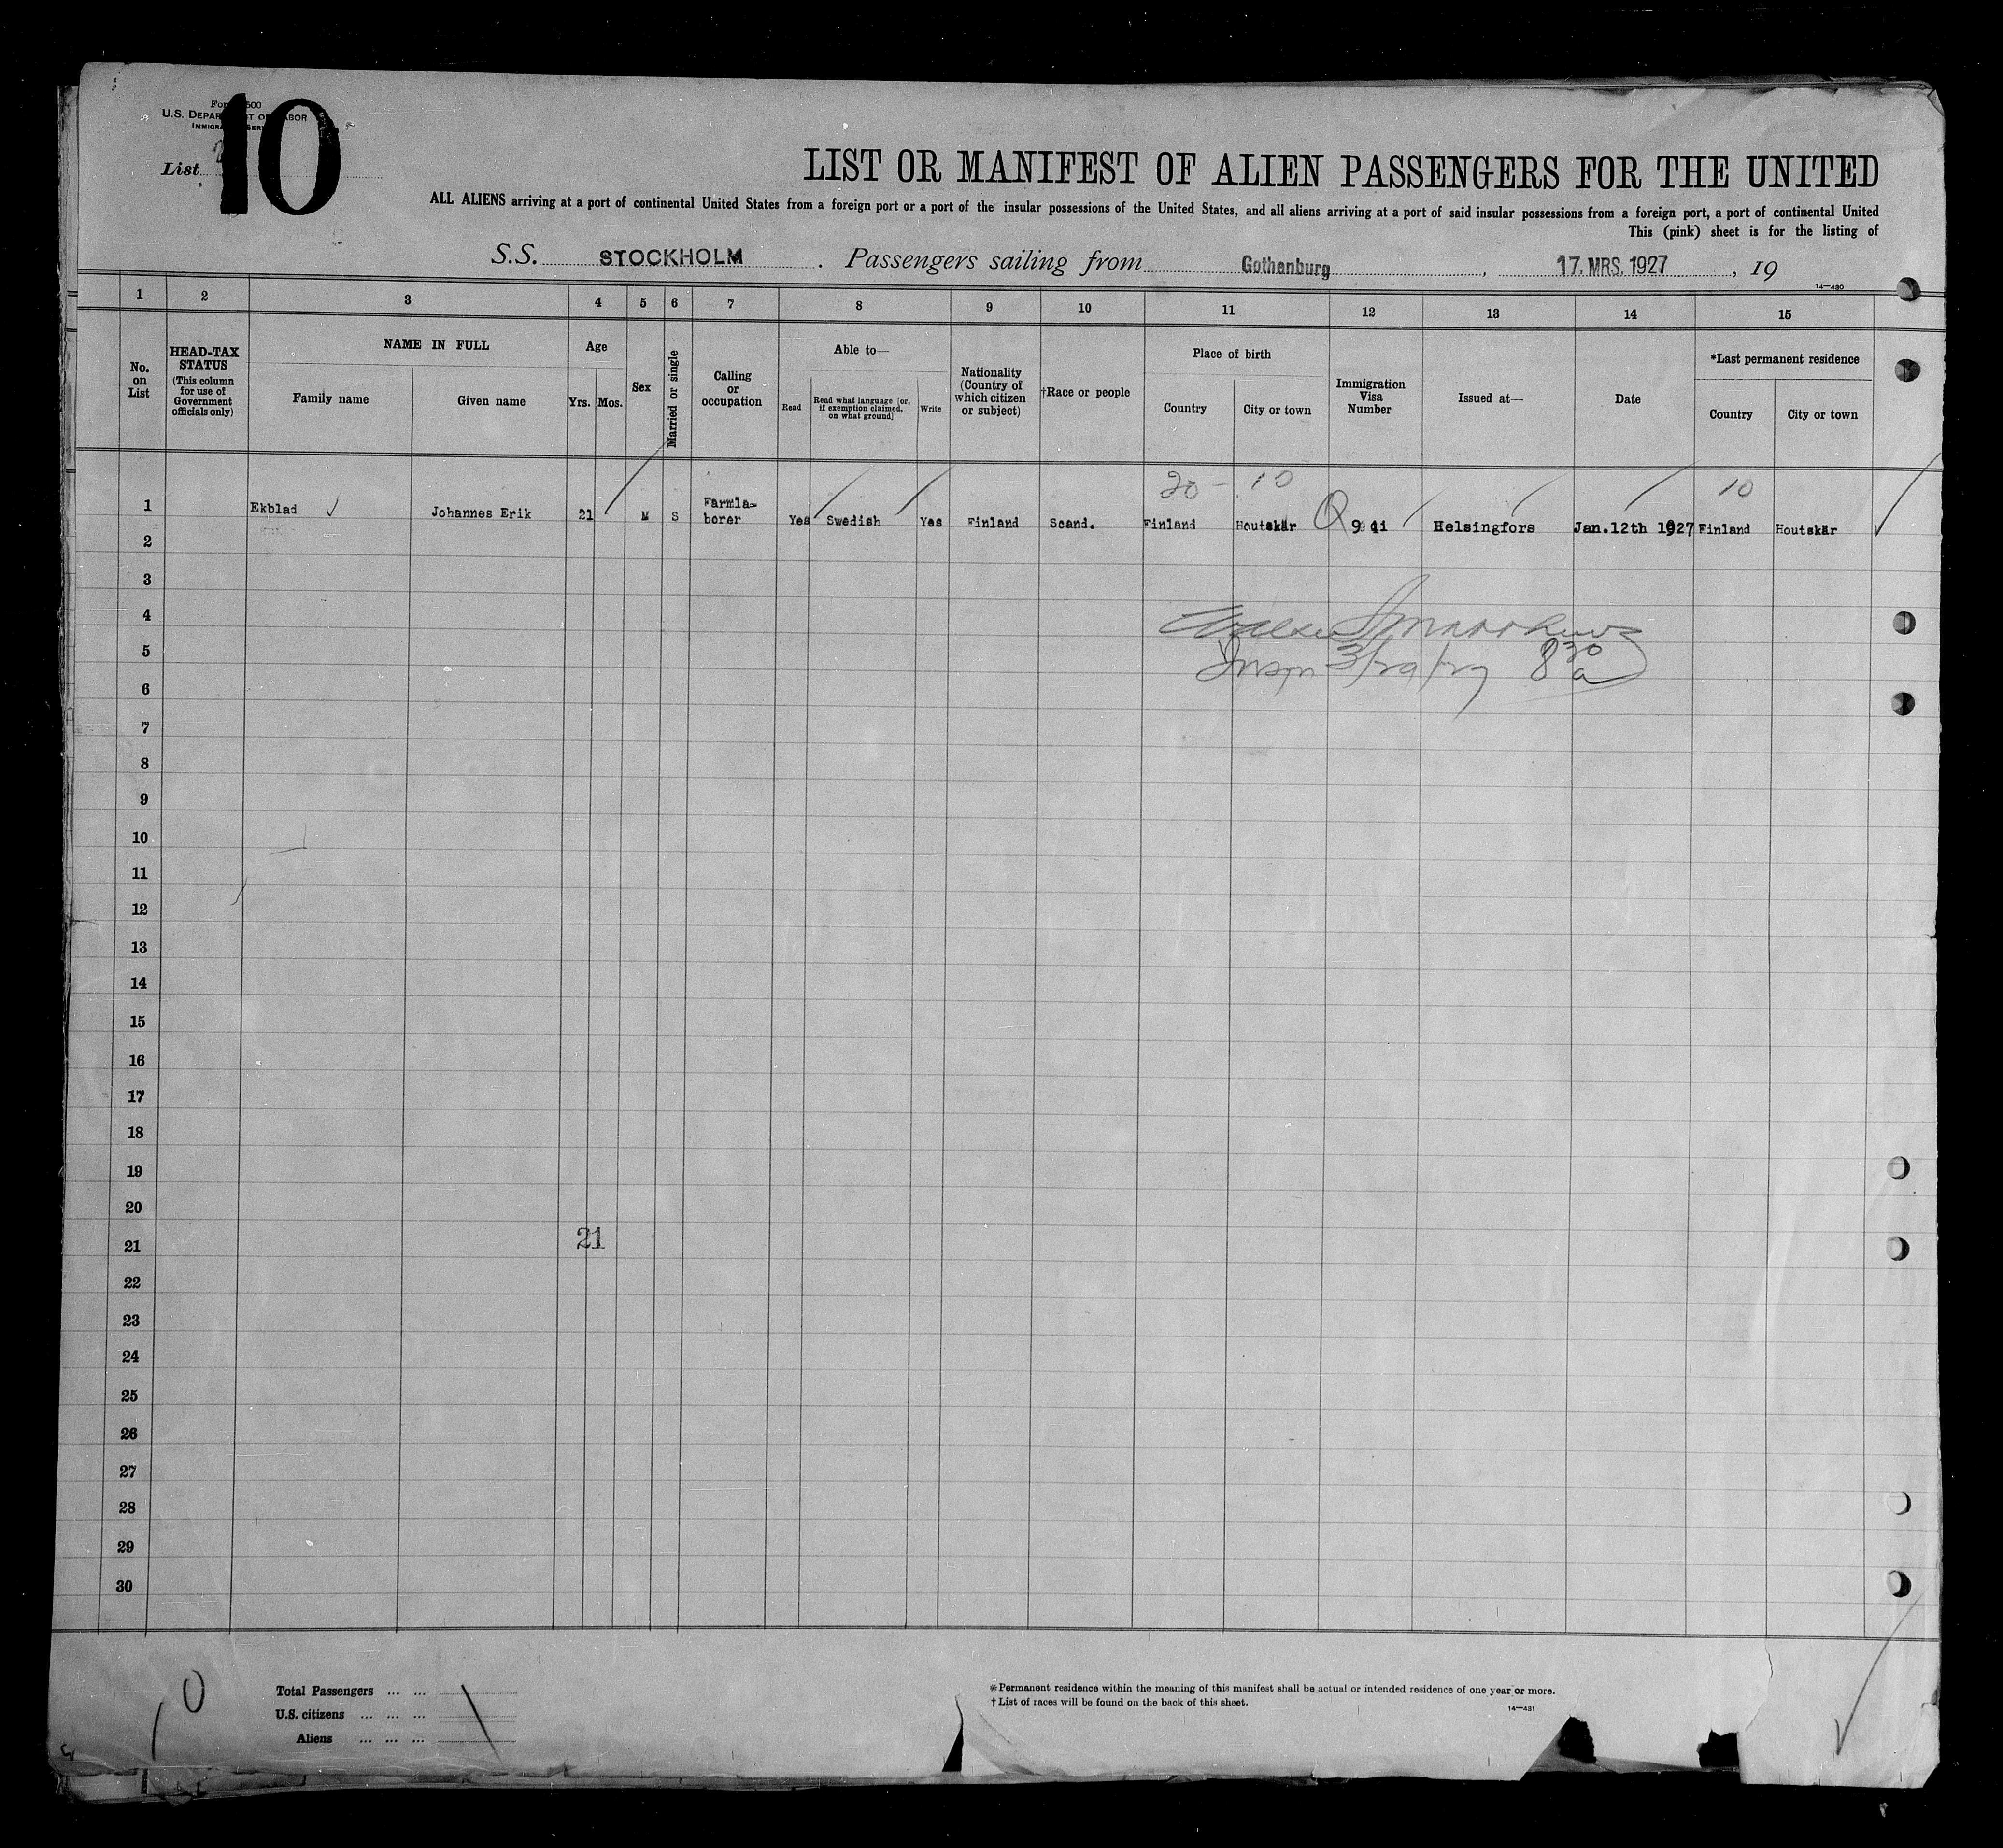 U.S. DEPARTMENT OF LABOR
List
10
LIST OR MANIFEST OF ALIEN PASSENGERS FOR THE UNITED
ALL ALIENS arriving at a port of continental United States from a foreign port or a port of the insular possessions of the United States, and all aliens arriving at a port of said insular possessions from a foreign port, a port of continental United
This (pink) sheet is for the listing of
S.S. STOCKHOLM . Passengers sailing from Gothenburg , 17. MRS. 1927 , 19
14—430
1 2 3 4 5 6 7 8 9 10 11 12 13 14 15
No. on List
HEAD-TAX STATUS (This column for use of Government officials only)
NAME IN FULL
Family name
Given name
Age
Yrs. Mos.
Sex
Married or single
Calling or occupation
Able to—
Read
Read what language [or, if exemption claimed, on what ground]
Write
Nationality (Country of which citizen or subject)
†Race or people
Place of birth
Country
City or town
Immigration Visa Number
Issued at—
Date
*Last permanent residence
Country
City or town
20 - 10 10
1 Ekblad Johannes Erik 21 M S Farmla-borer Yes Swedish Yes Finland Scand. Finland Houtskär Helsingfors Jan.12th 1927 Finland Houtskär
2
3
4
5
6
7
8
9
10
11
12
13
14
15
16
17
18
19
20
21
21
22
23
24
25
26
27
28
29
30
10
Total Passengers ... ...
U.S. citizens ... ... ...
Aliens ... ... ...
*Permanent residence within the meaning of this manifest shall be actual or intended residence of one year or more.
†List of races will be found on the back of this sheet.
14—431